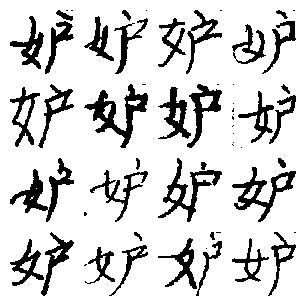 妒妒妒妒
妒妒妒妒
妒妒妒妒
妒妒妒妒